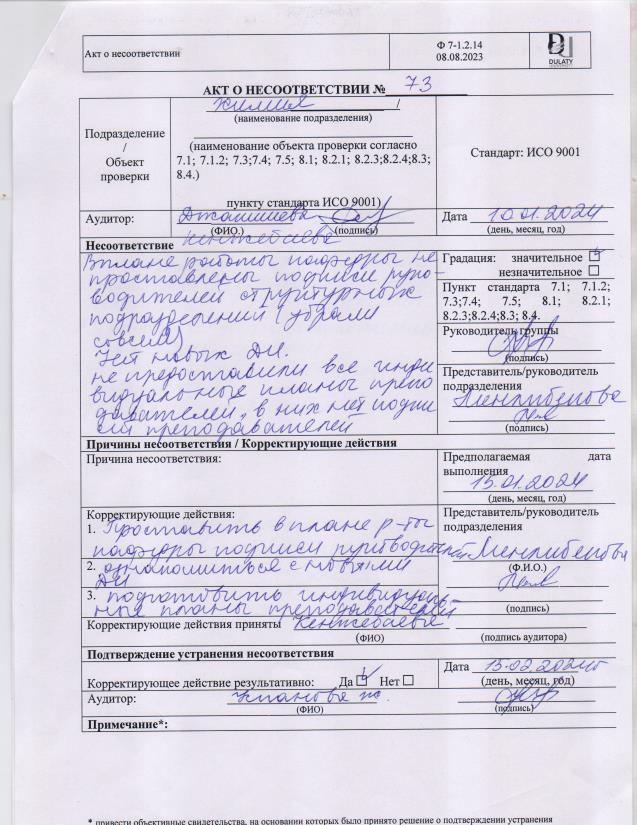 Акт о несоответствии
Ф 7-1.2.14
08.08.2023
DULATY
UNIVERSITY
АКТ О НЕСООТВЕТСТВИИ № 73
Подразделение
/
Объект
проверки
Химия /
(наименование подразделения)
(наименование объекта проверки согласно
7.1; 7.1.2; 7.3;7.4; 7.5; 8.1; 8.2.1; 8.2.3;8.2.4;8.3;
8.4.)
пункту стандарта ИСО 9001)
Стандарт: ИСО 9001
Аудитор:
(ФИО.) (подпись)
Кенжебаева
Дата 10.01.2024
(день, месяц, год)
Несоответствие
В плане работы кафедры не
проставлены подписи руко-
водителей структурных
подразделений (убрали
совсем)
Нет новых ДИ.
не предоставили все инди
видуальные планы препо
давателей, в них нет подпи
сей преподавателей
Градация: значительное
незначительное
Пункт стандарта 7.1; 7.1.2;
7.3;7.4; 7.5; 8.1; 8.2.1;
8.2.3;8.2.4;8.3; 8.4.
Руководитель группы
(подпись)
Представитель/руководитель
подразделения
Менлибекова
(подпись)
Причины несоответствия / Корректирующие действия
Причина несоответствия:
Предполагаемая дата
выполнения
15.01.2024
(день, месяц, год)
Корректирующие действия:
1. Проставить в плане р-ты
кафедры подписи руководителей
2. ознакомиться с новыми
ДИ
3. подготовить индивидуаль
ные планы преподавателей
Представитель/руководитель
подразделения
Менлибекова
(Ф.И.О.)
(подпись)
Корректирующие действия приняты Кенжебаева
(ФИО) (подпись аудитора)
Подтверждение устранения несоответствия
Корректирующее действие результативно: Да Нет
Дата 15.02.2024
(день, месяц, год)
Аудитор:
(ФИО)
(подпись)
Примечание*:
* привести объективные свидетельства, на основании которых было принято решение о подтверждении устранения